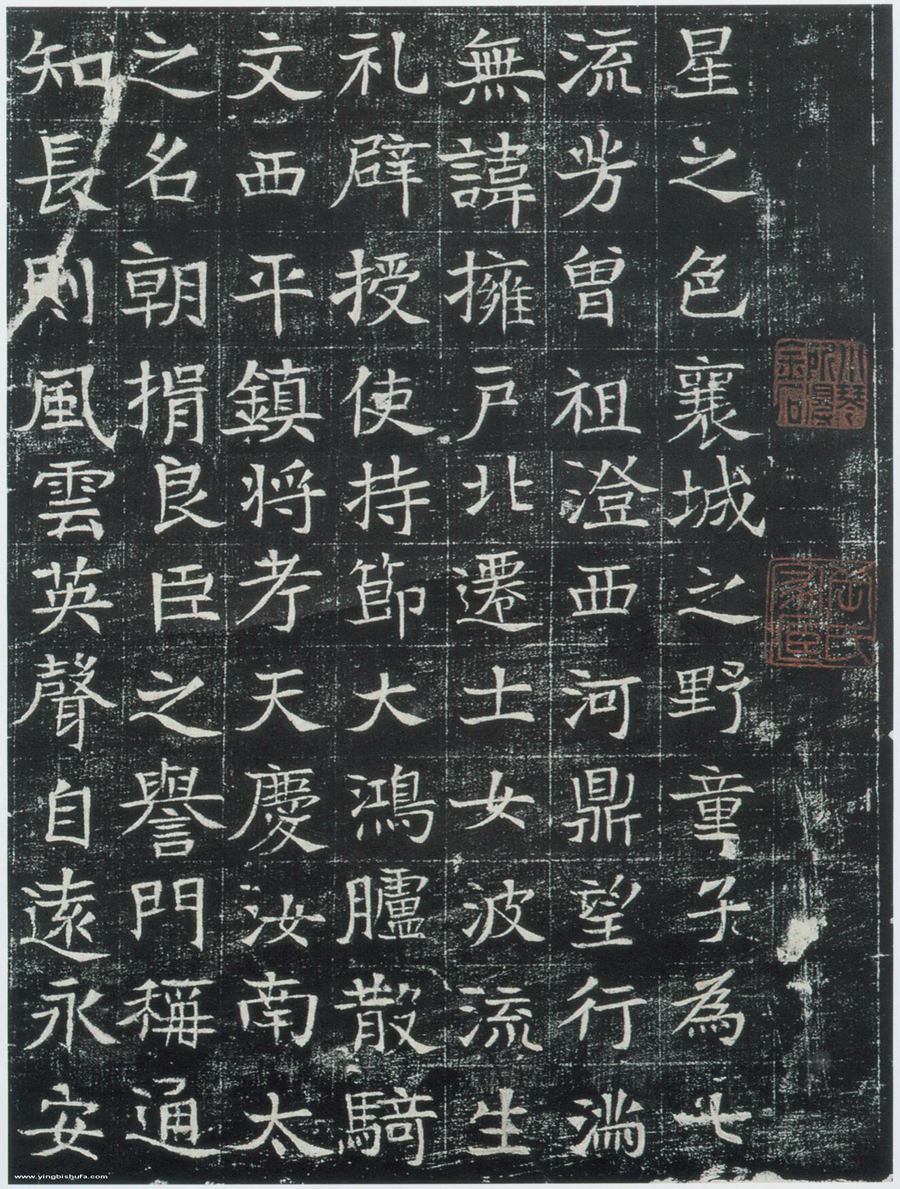 星之色襄城之野童子為七
流芳曾祖澄西河鼎望行滿
無諱擁戶北遷士女波流生
礼辟授使持節大鴻臚散騎
文西平鎮将考天慶汝南太
之名朝捐良臣之譽門稱通
知長則風雲英聲自遠永安
www.yingbishufa.com